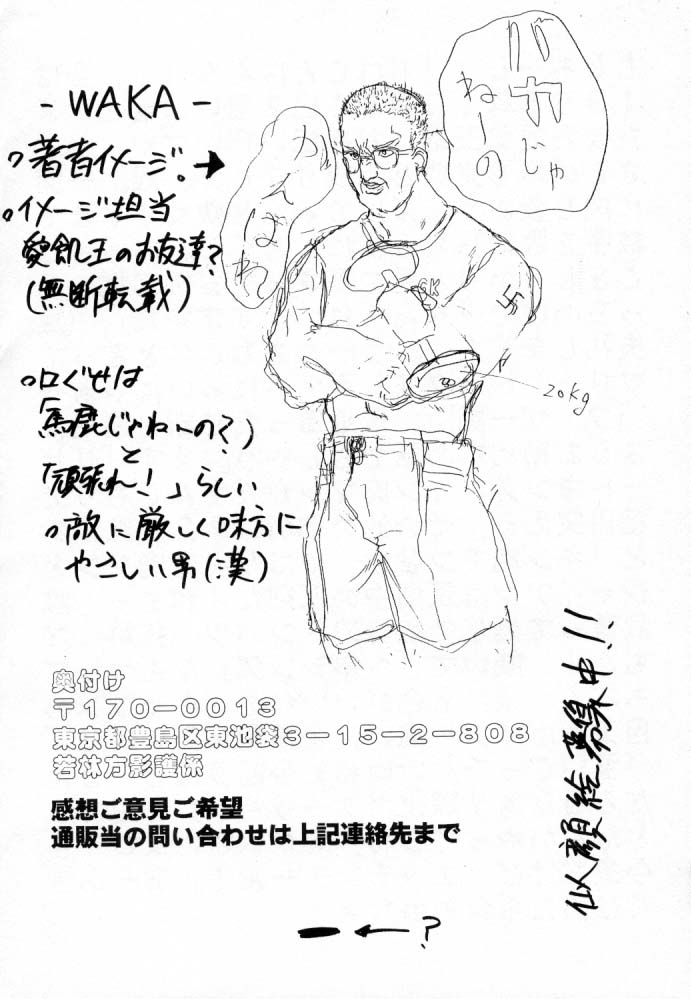 - WAKA -
。著者イメージ。→
。イメージ担当
餓王のお友達?
(無断転載)
。口ぐせは
「馬鹿じゃねーの?」
と
「頑張れ!」らしい
。敵に厳しく味方に
やさしい男(漢)
バカじゃ
ねーの
がんばれ
GK
卐
20kg
奥付け
〒170-0013
東京都豊島区東池袋3-15-2-808
若林方影護係
感想ご意見ご希望
通販当の問い合わせは上記連絡先まで
似顔絵募集中!!
ー←?